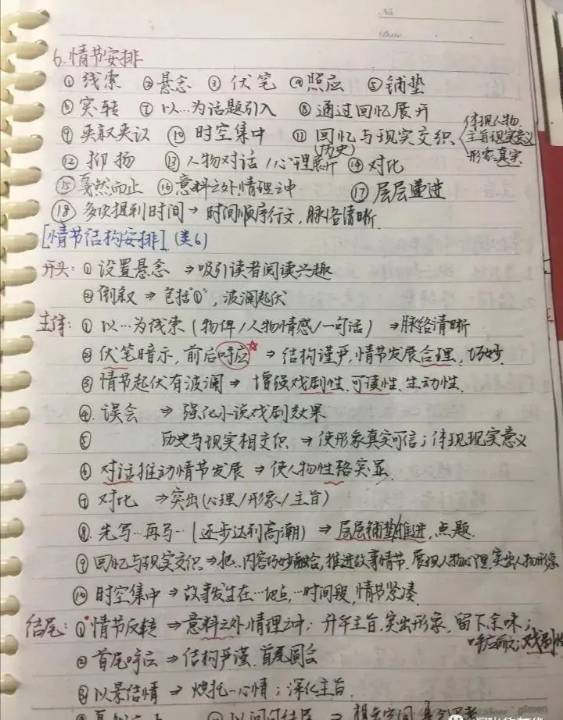 No
Date
6.情节安排
①线索 ②悬念 ③伏笔 ④照应 ⑤铺垫
⑥突转 ⑦以…为话题引入 ⑧通过回忆展开
⑨ ⑩时空集中 ⑪回忆与现实交织 体现人物
(历史) 主旨现实意义
形象真实
⑫抑扬 ⑬人物对话/心理展开 ⑭对比
⑮戛然而止 ⑯意料之外情理之中 ⑰层层递进
⑱多次提到时间→时间顺序行文,脉络清晰.
[情节结构安排](类6)
开头:①设置悬念⇒吸引读者阅读兴趣
②倒叙⇒包括"①",波澜起伏
主体:①以…为线索(物件/人物情感/一句话)⇒脉络清晰
②伏笔暗示,前后呼应☆⇒结构谨严,情节发展合理、巧妙
③情节起伏有波澜⇒增强戏剧性、可读性、生动性.
④误会⇒强化小说戏剧效果
⑤历史与现实相交织⇒使形象真实可信;体现现实意义
⑥对话推动情节发展⇒使人物性格突显.
⑦对比⇒突出(心理/形象/主旨)
⑧先写…再写…(逐步达到高潮)⇒层层铺垫推进,点题.
⑨回忆与现实交织⇒把…内容巧妙融合,推进故事情节,展现人物心理,突出人物形象
⑩时空集中⇒故事发生在…地点,…时间段,情节紧凑.
结尾:①情节反转⇒意料之外情理之中;升华主旨,突出形象,留下余味;
呼应前文;戏剧性
②首尾呼应⇒结构严谨,首尾圆合
③以景结情⇒烘托…心情;深化主旨.